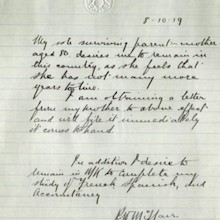 5-10-19
My sole surviving parent - mother
aged 80. desires me to remain in
this country, as she feels that
she has not many more
years to live.
I am obtaining a letter
from my mother to above effect
and will file it immediately
it comes to hand.
In addition I desire to
remain in to complete my
study of French Spanish, and
Accountancy